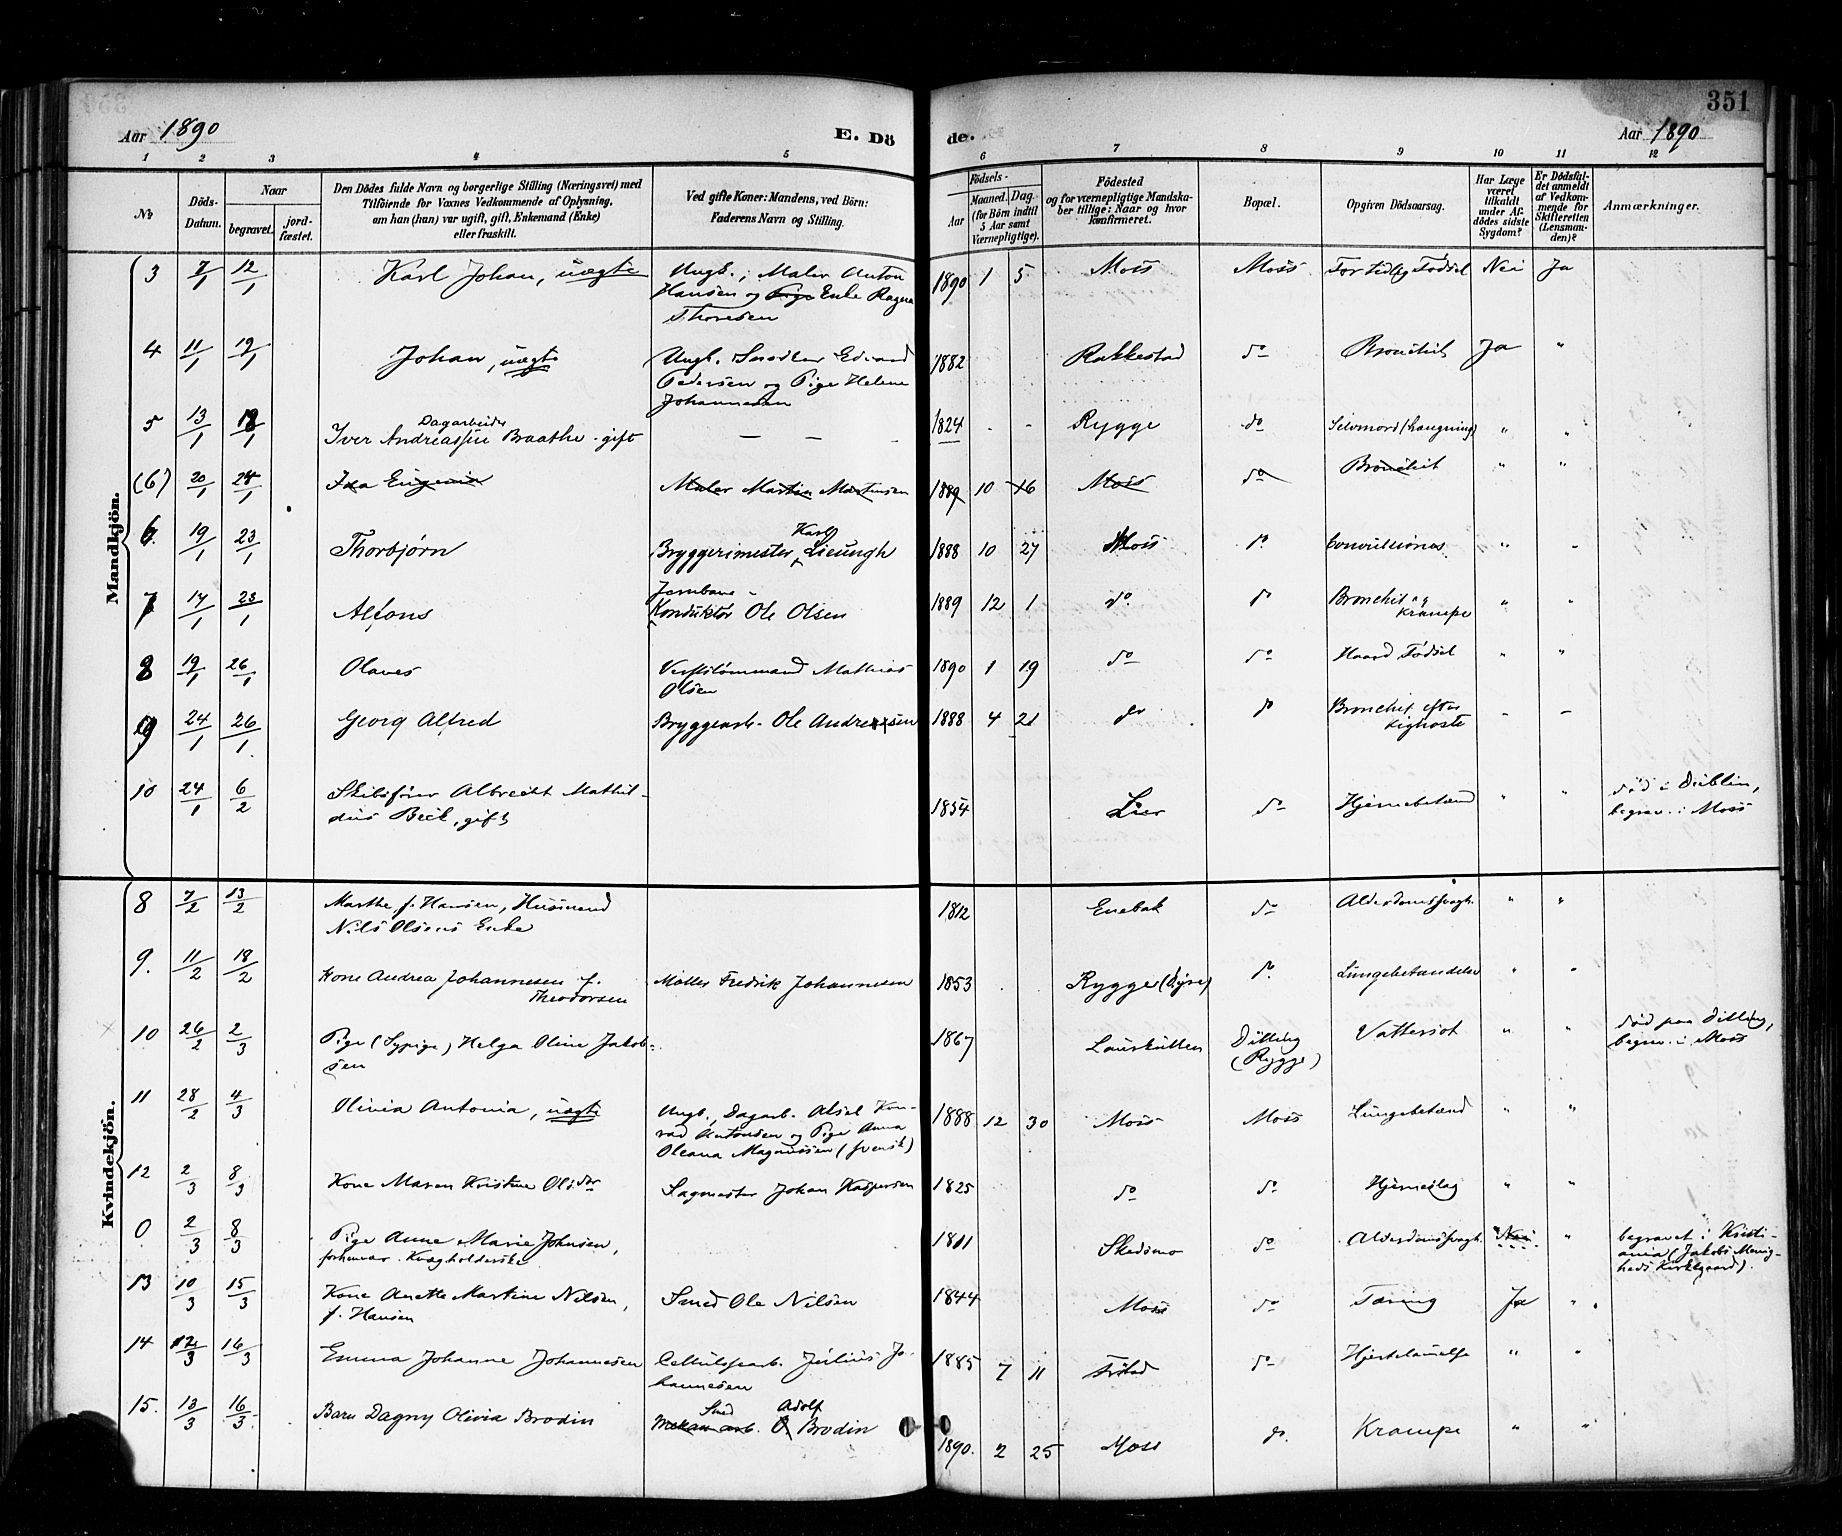 351
Aar 1890
E. Dö
de.
Aar 1890
1 2 3 4 5 6 7 8 9 10 11 12
No
Döds-
Datum.
Naar
begravet.
jord-
fæstet.
Den Dödes fulde Navn og borgerlige Stilling (Næringsvei) med
Tilföiende for Voxnes Vedkommende af Oplysning,
om han (hun) var ugift, gift, Enkemand (Enke)
eller fraskilt.
Ved gifte Koner: Mandens, ved Börn:
Faderens Navn og Stilling.
Födsels-
Aar
Maaned.
Dag.
(for Börn indtil
5 Aar samt
Værnepligtige).
Födested
og for værnepligtige Mandska-
ber tillige: Naar og hvor
konfirmeret.
Bopæl.
Opgiven Dödsaarsag.
Har Læge
været
tilkaldt
under Af-
dödes sidste
Sygdom?
Er Dödsfal-
det anmeldt
af Vedkom-
mende for
Skifteretten
(Lensman-
den)?
Anmærkninger.
Mandkjön.
3 7/1 12/1 Karl Johan, uægte Ungk., Maler Anton 1890 1 5 Moss Moss For tidlig Fødsel Nei Ja
Hansen og Pige Enke Ragna
Thoresen
4 11/1 19/1 Johan, uægte Ungk. Snedker Edvard 1882 Rakkestad do Bronchit Ja "
Pedersen og Pige Helene
Johannesen
Dagarbeider
5 13/1 18/1 Iver Andreassen Braathe gift — — - 1824 - - Rygge do Selvmord (hængning) " "
(6) 20/1 24/1 Ida Eugenia Maler Martin Martinsen 1889 10 16 Moss do Bronchit " "
Karl
6 19/1 23/1 Thorbjørn Bryggerimester Lieungh 1888 10 27 Moss do Convulsiones " "
Jernbane-
7 14/1 23/1 Alfons Konduktør Ole Olsen 1889 12 1 do do Bronchit og " "
Krampe
8 19/1 26/1 Olaves Verkstømmerand Mathias 1890 1 19 do do Haard Fødsel " "
Olsen
9 24/1 26/1 Georg Alfred Bryggearb. Ole Andreassen 1888 4 21 do do Bronchit efter - -
Kighoste
10 24/1 6/2 Skibsfører Albrecht Mathil- 1854 Lier do Hjernebetænd " " død i Dublin,
dius Beck, gift begrav. i Moss
Kvindekjön.
8 7/2 13/2 Marthe f. Hansen, Husmand 1812 Enebak do Alderdomssvagh. " "
Nils Olsens Enke
9. 11/2 18/2 Kone Andrea Johannesen f. Møller Fredrik Johannesen 1853 Rygge (Dyre) do Lungebetændelse " "
Theodorsen
10 26/2 2/3 Pige (Sypige) Helga Oline Jakob- 1867 Laurkullen Dilling Vattersot " " død paa Dilling,
sen (Rygge) begrav. i Moss
11 28/2 4/3 Olivia Antonia, uægte Ungk., Dagarb. Aksel Kon- 1888 12 30 Moss Moss Lungebetænd " "
rad Antonsen og Pige Anna
Oleana Magnussen (svensk)
12 2/3 8/3 Kone Maren Kristine Olsdtr Sagmester Johan Kaspersen 1825 do do Hjerneslag " "
0 2/3 8/3 Pige Anne Marie Johnsen, 1811 Skedsmo do Alderdomssvagh. Nei " begravet i Kristi-
forhenvær. Kvægholderske ania (Jakobs Menig-
heds Kirkegaard).
13 10/3 15/3 Kone Anette Martine Nilsen, Smed Ole Nilsen 1844 Moss do Tæring Ja "
f. Hansen
14 12/3 16/3 Emma Johanne Johannesen Cellulosearb. Julius Jo- 1885 7 11 Frstad do Hjertelamelse " "
hannesen
Smed Adolf
15. 13/3 16/3 Barn Dagny Olivia Brodin Mekan arb. O. Brodin 1890. 2 25 Moss do. Krampe " "